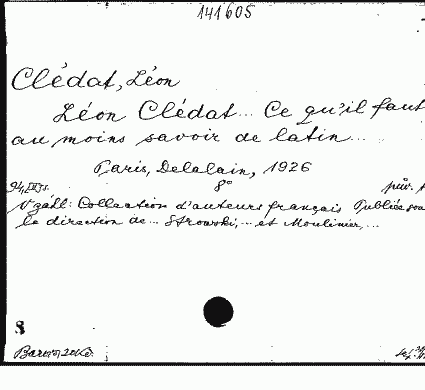 141605
Clédat, Léon
Léon Clédat... Ce qu'il faut
au moins savoir de latin...
Paris, Delalain, 1926
8°
Collection d'auteurs français Publiée sou
la direction de... Strowski,... et Moulinier,...
8